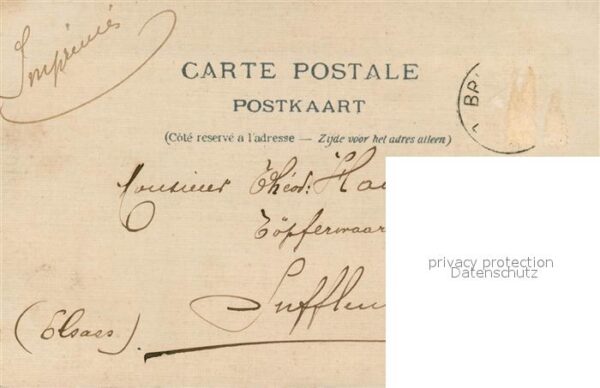 Imprimés
CARTE POSTALE
POSTKAART
(Côté reservé a l'adresse — Zijde voor het adres alleen)
BR
Monsieur Théod: Ha
Töpferwaar
Suffle
(Elsass).
privacy protection
Datenschutz